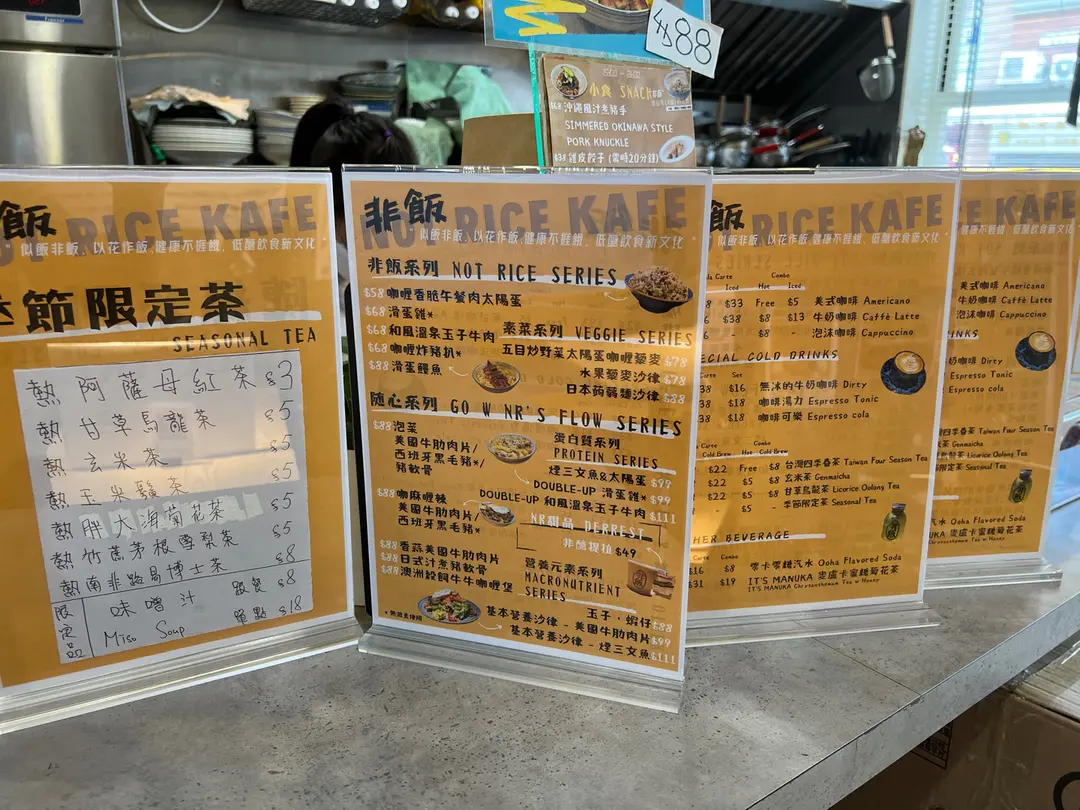 $88
小食 SNACK
$68 沖繩風汁煮豬手
SIMMERED OKINAWA STYLE
PORK KNUCKLE
$38 雞皮餃子 (需時20分鐘)
飯 RICE KAFE
似飯非飯, 以花作飯, 健康不捱餓, 低醣飲食新文化
季節限定茶
SEASONAL TEA
熱 阿薩母紅茶 $3
熱 甘草烏龍茶 $5
熱 玄米茶 $5
熱 玉米鬚茶 $5
熱 胖大海菊花茶 $5
熱 竹蔗茅根雪梨茶 $5
熱 南非路易博士茶 $8
限定品 味噌汁 跟餐 $8
Miso Soup 單點 $18
非飯 NOT RICE KAFE
似飯非飯, 以花作飯, 健康不捱餓, 低醣飲食新文化
非飯系列 NOT RICE SERIES
$58 咖喱香脆午餐肉太陽蛋
$68 滑蛋雞*
$68 和風溫泉玉子牛肉
$68 咖喱炸豬扒*
$88 滑蛋鰻魚
素菜系列 VEGGIE SERIES
五目炒野菜太陽蛋咖喱藜麥 $78
水果藜麥沙律 $88
日本蒟蒻麵沙律 $88
隨心系列 GO W NR'S FLOW SERIES
$88 泡菜
美國牛肋肉片/
西班牙黑毛豬*/
豬軟骨
蛋白質系列
PROTEIN SERIES
煙三文魚&太陽蛋 $99
DOUBLE-UP 滑蛋雞* $99
DOUBLE-UP 和風溫泉玉子牛肉 $111
$88 咖麻喱辣
美國牛肋肉片/
西班牙黑毛豬*
NR甜品 DERREST
非醣提拉 $49
$88 香蒜美國牛肋肉片
$88 日式汁煮豬軟骨
$88 澳洲穀飼牛牛咖喱堡
營養元素系列
MACRONUTRIENT
SERIES
玉子 · 蝦仔 $88
基本營養沙律 - 美國牛肋肉片 $99
基本營養沙律 - 煙三文魚 $111
飯 RICE KAFE
似飯非飯, 以花作飯, 健康不捱餓, 低醣飲食新文化
Combo
Iced Hot Iced
$33 Free $5 美式咖啡 Americano
$38 $8 $13 牛奶咖啡 Caffè Latte
- $8 - 泡沫咖啡 Cappuccino
SPECIAL COLD DRINKS
Carte Set
38 $16 無冰的牛奶咖啡 Dirty
38 $18 咖啡湯力 Espresso Tonic
38 $18 咖啡可樂 Espresso cola
Carte Combo
Cold Brew Hot Cold Brew
$22 Free $8 台灣四季春茶 Taiwan Four Season Tea
$22 $5 $8 玄米茶 Genmaicha
$22 $5 $8 甘草烏龍茶 Licorice Oolong Tea
- $5 - 季節限定茶 Seasonal Tea
HER BEVERAGE
$16 $8 零卡零糖汽水 Ooha Flavored Soda
$31 $19 IT'S MANUKA 麥盧卡蜜糖菊花茶
IT'S MANUKA Chrysanthemum Tea w Honey
RICE KAFE
以花作飯, 健康不捱餓, 低醣飲食新文化
美式咖啡 Americano
牛奶咖啡 Caffè Latte
泡沫咖啡 Cappuccino
奶咖啡 Dirty
Espresso Tonic
Espresso cola
四季春茶 Taiwan Four Season Tea
玄米茶 Genmaicha
龍茶 Licorice Oolong Tea
限定茶 Seasonal Tea
汽水 Ooha Flavored Soda
NUKA 麥盧卡蜜糖菊花茶
Chrysanthemum Tea w Honey